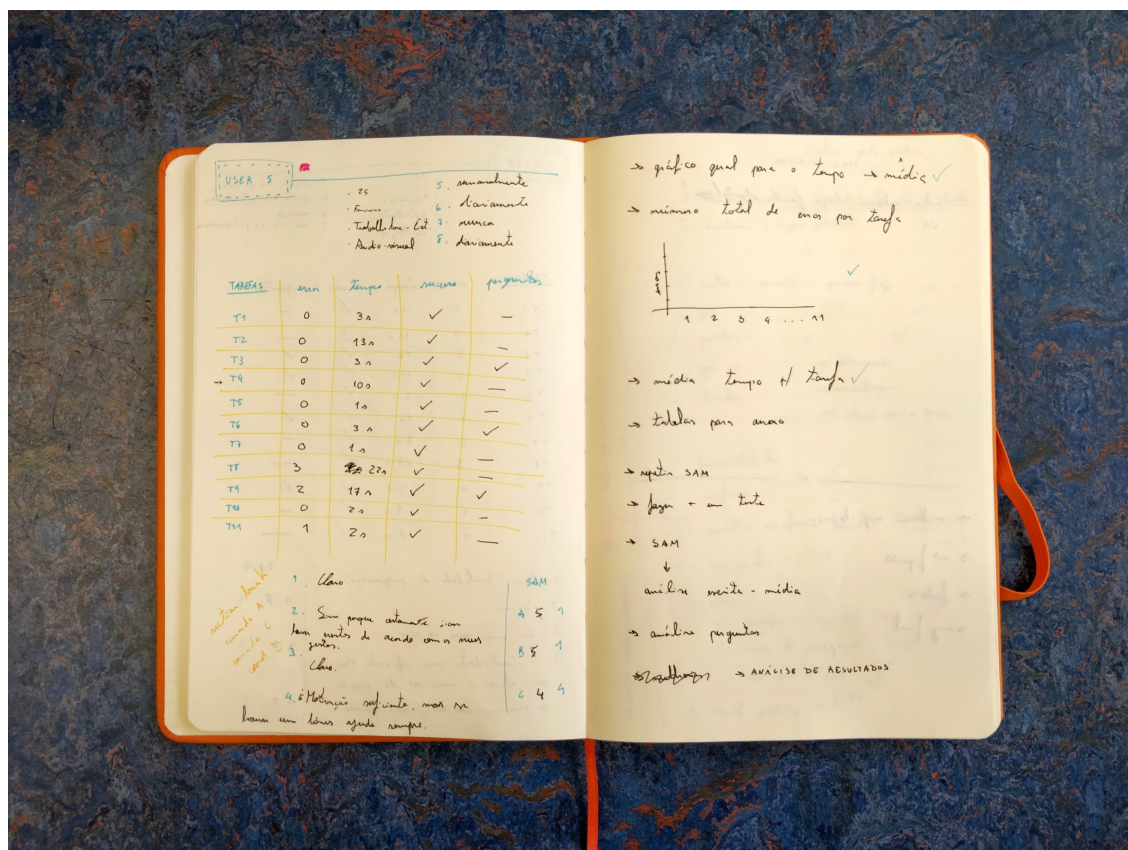 USER 5
. 25
. Trabalhador-Est.
. Audio-visual
5. semanalmente
6. diariamente
7. nunca
8. diariamente
TAREFAS erros tempo sucesso perguntas
T1 0 3s ✓ —
T2 0 13s ✓ —
T3 0 3s ✓ ✓
→ T4 0 10s ✓ —
T5 0 1s ✓ —
T6 0 3s ✓ ✓
T7 0 1s ✓ —
T8 3 22s ✓ —
T9 2 17s ✓ ✓
T10 0 2s ✓ —
T11 1 2s ✓ —
1. Claro.
2. Sim porque certamente iam
bem vistos de acordo com os meus
gostos.
3.
Claro.
4. é Motivação suficiente, mas se
houver um bónus ajuda sempre.
comando A
comando C
SAM
A 5 1
B 5 1
C 4 4
→ gráfico geral para o tempo → média ✓
→ número total de erros por tarefa
erros
1 2 3 4 ... 11
✓
→ média tempo p/ tarefa ✓
→ tabelas para anexo
→ repetir SAM
→ fazer + um teste
→ SAM
↓
análise escrita - média
→ análise perguntas
→ ANÁLISE DE RESULTADOS